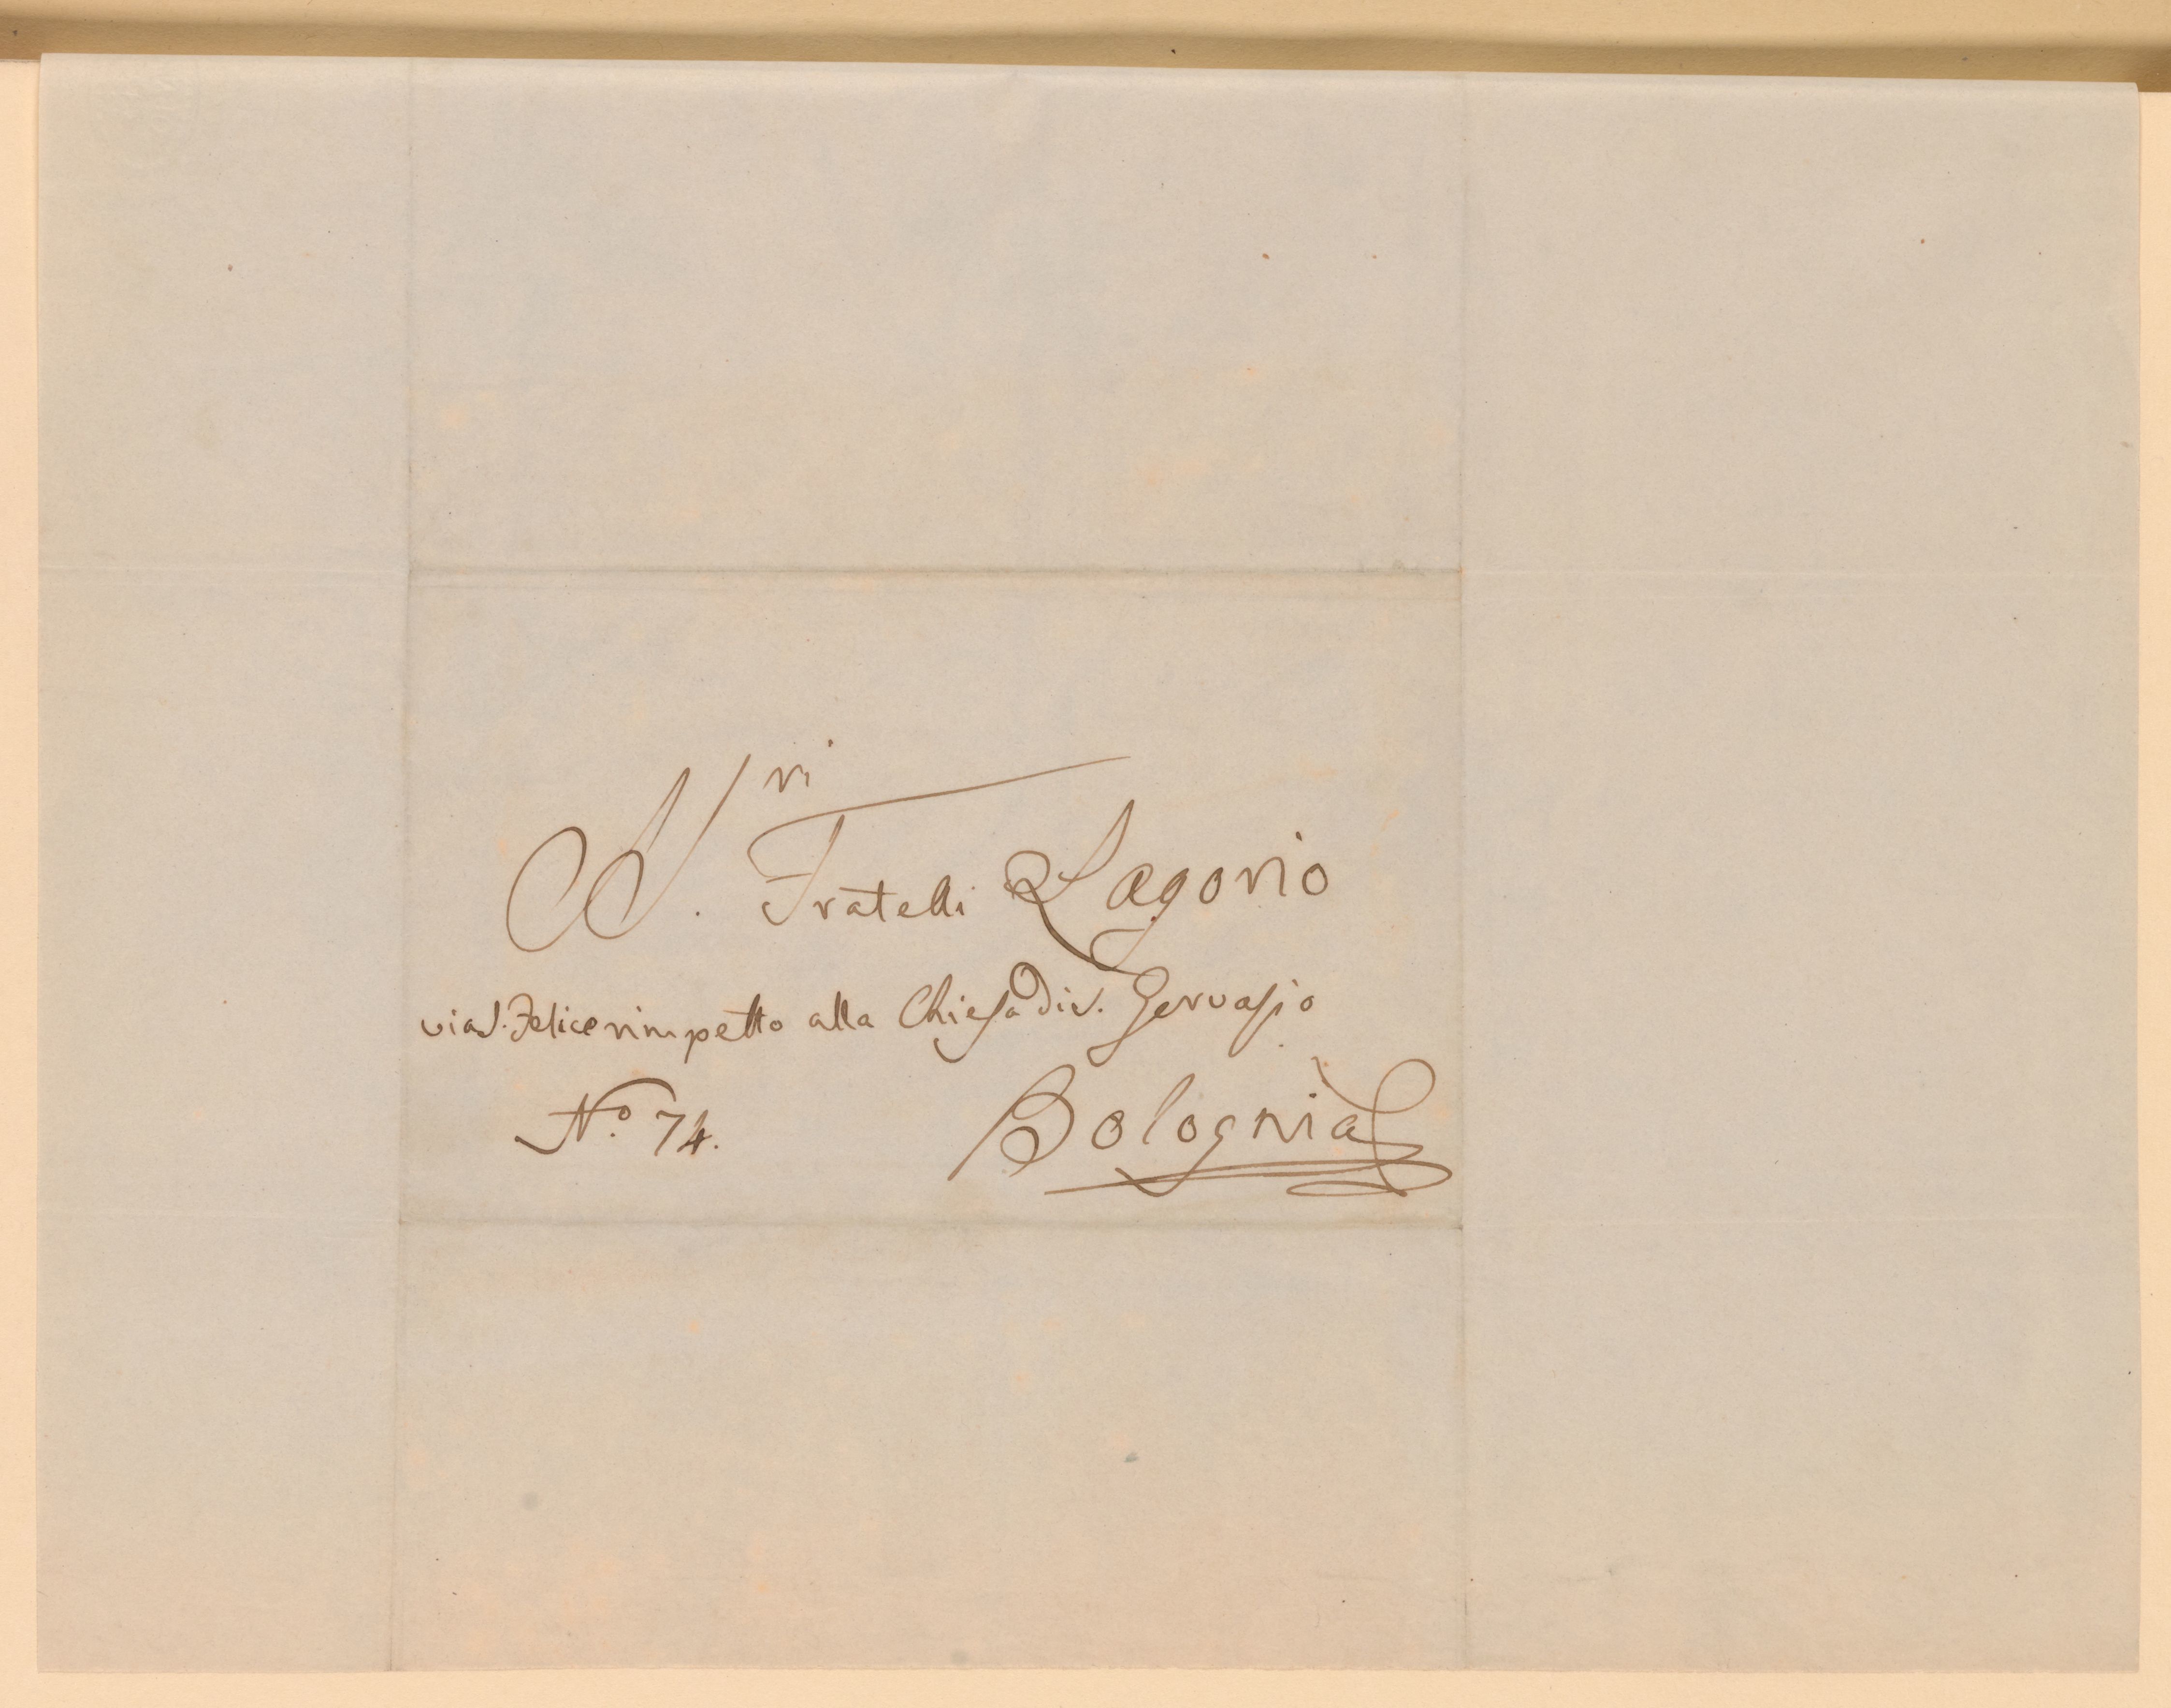 N.ri Fratelli Lagorio
via S. Felice rimpetto alla Chiesa di S. Gervasio
N.o 74. Bolognia